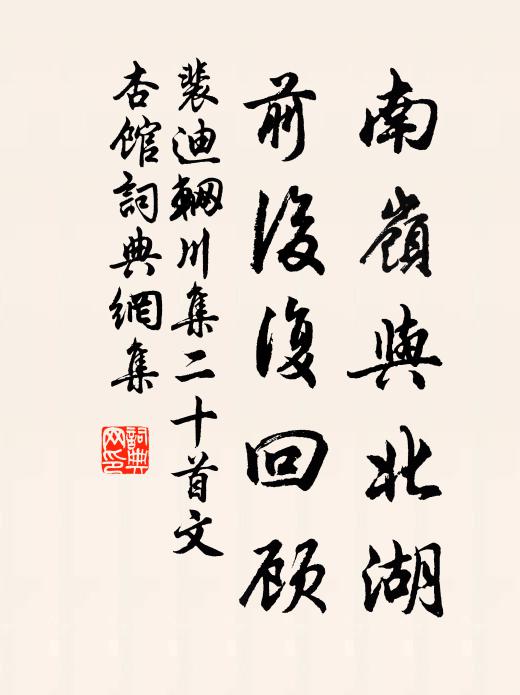 南嶺與北湖
前後復回顾
裴迪輞川集二十首文
杏館詞典網集
詞典
网印